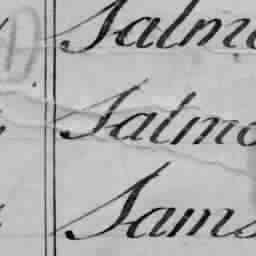 Salmo
Salmo
Sams